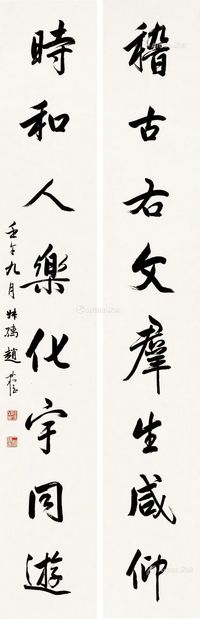 稽古右文羣生咸仰
時和人樂化宇同遊
壬午九月叔孺趙